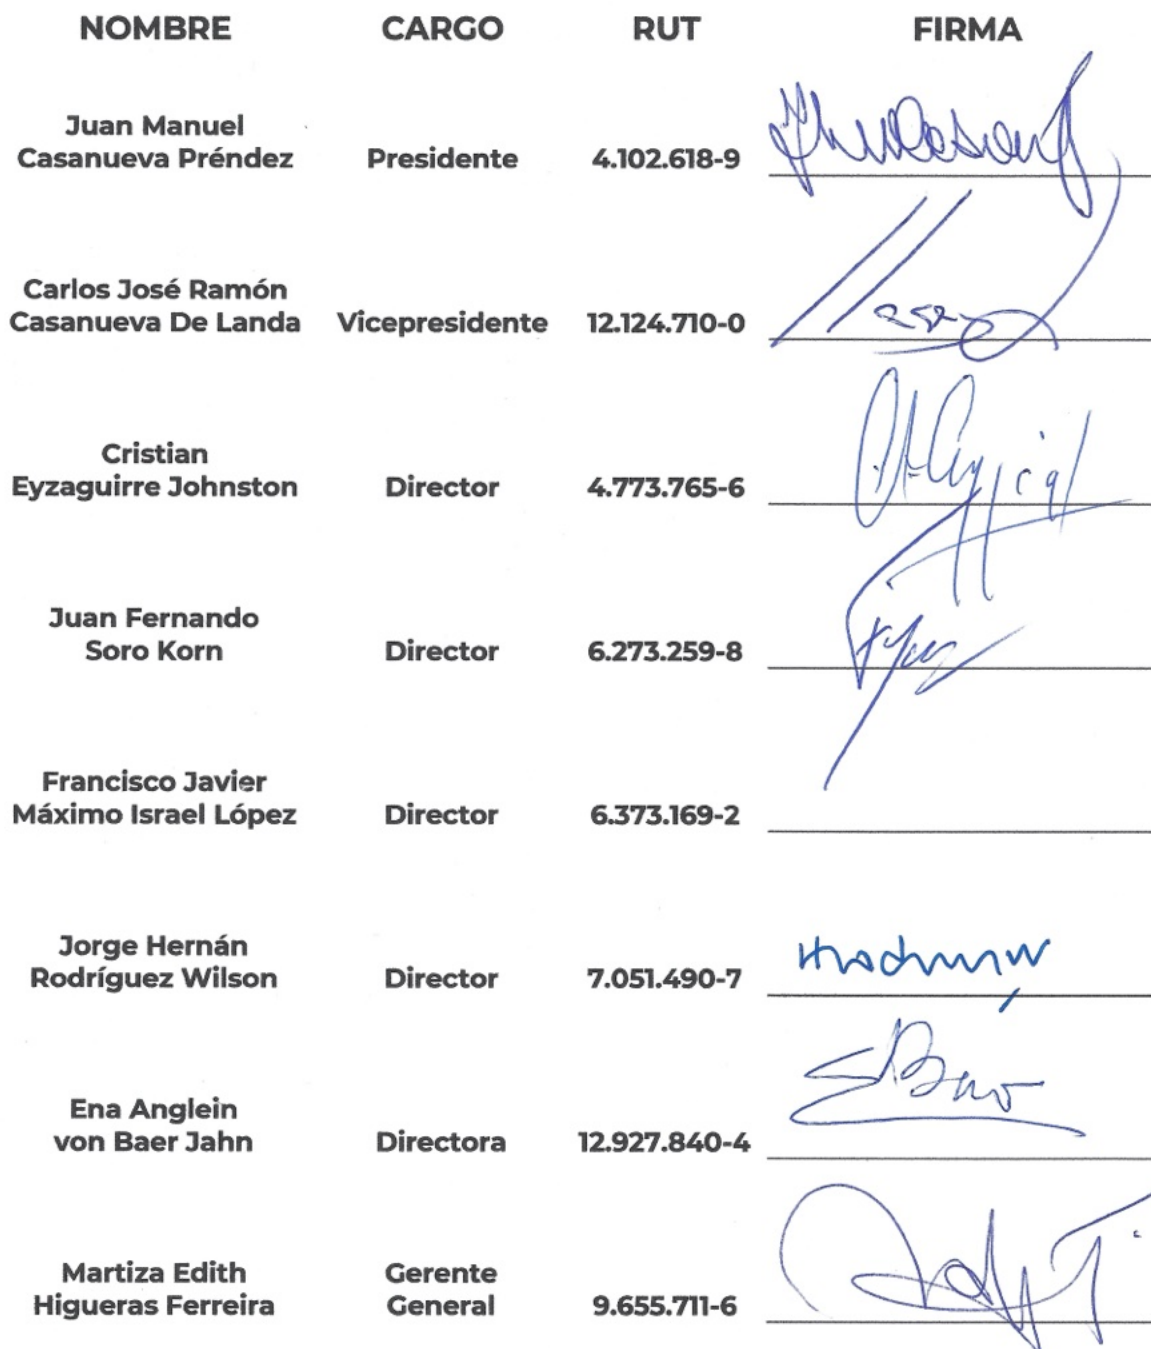 NOMBRE CARGO RUT FIRMA
Juan Manuel
Casanueva Préndez Presidente 4.102.618-9
Carlos José Ramón
Casanueva De Landa Vicepresidente 12.124.710-0
Cristian
Eyzaguirre Johnston Director 4.773.765-6
Juan Fernando
Soro Korn Director 6.273.259-8
Francisco Javier
Máximo Israel López Director 6.373.169-2
Jorge Hernán
Rodríguez Wilson Director 7.051.490-7
Ena Anglein
von Baer Jahn Directora 12.927.840-4
Martiza Edith Gerente
Higueras Ferreira General 9.655.711-6